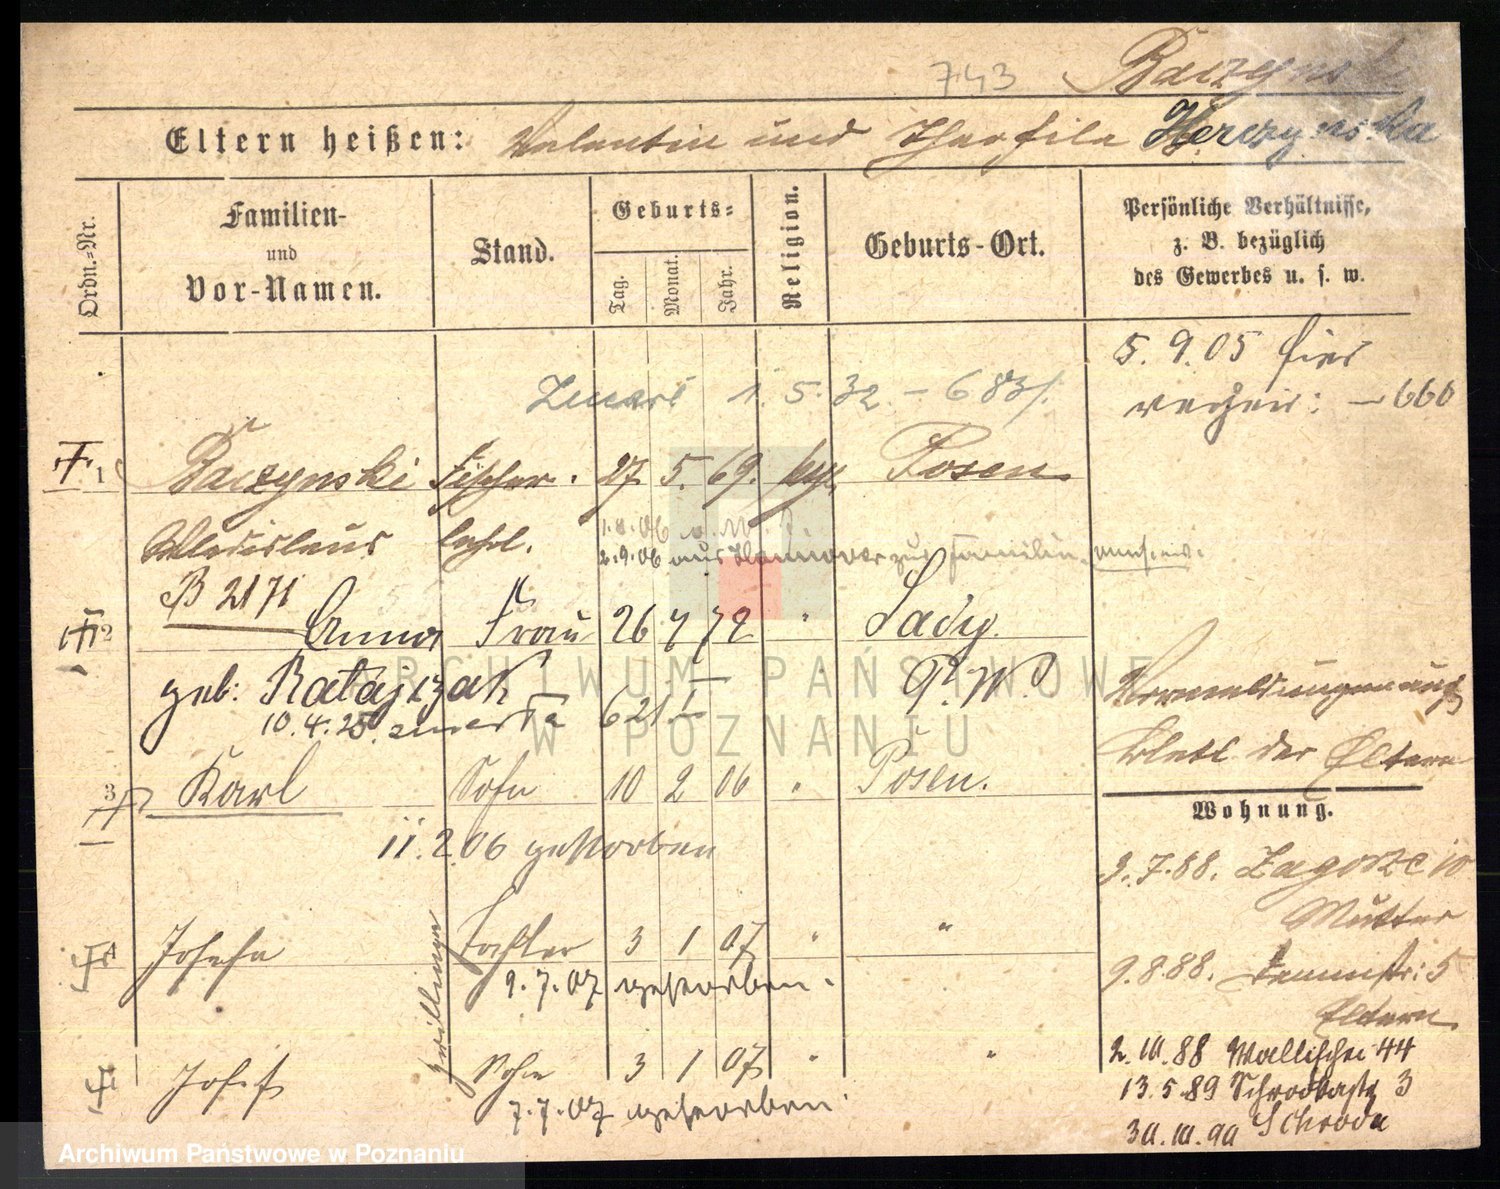 743 Baczynski
Eltern heißen: Valentin und Theofila Herczynska
Ordn.-Nr.
Familien-
und
Vor-Namen.
Stand.
Geburts-
Tag.
Monat.
Jahr.
Religion.
Geburts-Ort.
Persönliche Verhältnisse,
z. B. bezüglich
des Gewerbes u. s. w.
5. 9. 05 hier
verheir: – 660
Zmarł 1. 5. 32. – 683/.
1 Baczynski Fischer. 27 5. 69. kath. Posen
Wladislaus lehrl.
1.8.06
2.9.06 aus Hannover zur Familie
B 2171
2 Anna Frau 26 7 72 " Lady
geb: Ratajczak P. W.
10. 4. 25. zmarła 621/I
Vormeldungen auf
Blatt der Eltern
3 Karl Sohn 10 2 06 " Posen.
11. 2. 06 gestorben
Wohnung.
3. 7. 88. Zagorze 10
Mutter
4 Josefa Tochter 3 1 07 " "
9.8.88. 5
Eltern
2. 7. 07 gestorben.
Zwillinge
Josef Sohn 3 1 07 " "
7. 7. 07 gestorben.
2. 10. 88 Wallischei 44
13. 5. 89 Schrodkastr 3
30. 10. 90 Schroda
ARCHIWUM PAŃSTWOWE
W POZNANIU
Archiwum Państwowe w Poznaniu